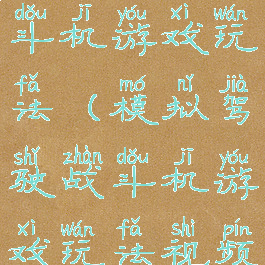 dǒu jī yóu xì wán
斗机游戏玩
fǎ mó nǐ jià
法（模拟驾
shǐ zhàn dǒu jī yóu
驶战斗机游
xì wán fǎ shì pín
戏玩法视频